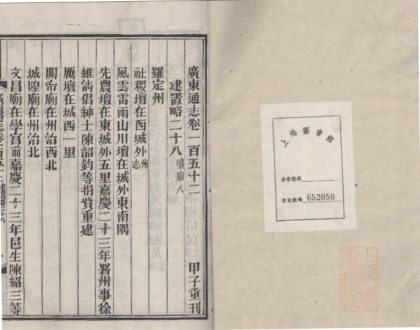 廣東通志卷一百五十二
甲子重刊
建置略二十八 壇廟八
羅定州
社稷壇在西城外 州志
風雲雷雨山川壇在城外東南隅
先農壇在東城外五里嘉慶二十三年署州事徐
維清倡紳士陳韶鈞等捐貲重建
厲壇在城西一里
關帝廟在州治西北
城隍廟在州治北
文昌廟在學宮前嘉慶二十三年邑生陳紹三等
上海圖書館
登記號碼 652050